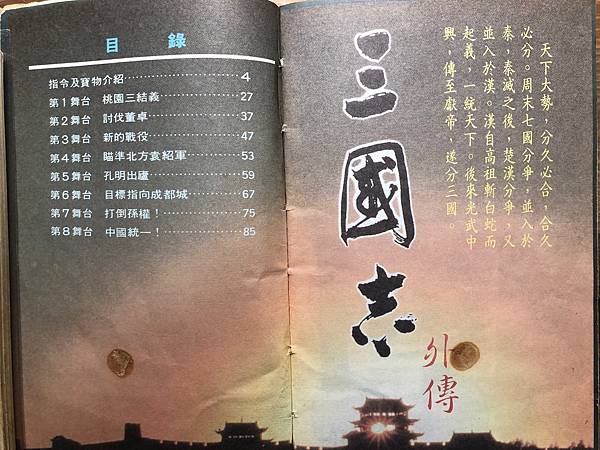 目錄
指令及寶物介紹……………………4
第1舞台 桃園三結義………………27
第2舞台 討伐董卓…………………37
第3舞台 新的戰役…………………47
第4舞台 瞄準北方袁紹軍…………53
第5舞台 孔明出廬…………………59
第6舞台 目標指向成都城…………67
第7舞台 打倒孫權！………………75
第8舞台 中國統一！………………85
天下大勢，分久必合，合久
必分。周末七國分爭，並入於
秦，秦滅之後，楚漢分爭，又
並入於漢。漢自高祖斬白蛇而
起義，一統天下。後來光武中
興，傳至獻帝，遂分三國。
三國志
外傳